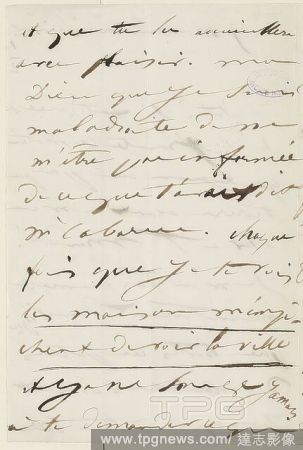 et que tu la accueillera
avec plaisir. mon
Dieu que je suis
maladroite de ne
m'être pas informée
de ce que t'avait dit
mr Cabarrus. chaque
fois que je te vois
les maison m'empê
chent de voir la ville
et je ne songe jamais
à te demander ce q
TPG
www.tpgnews.com/ 達志影像